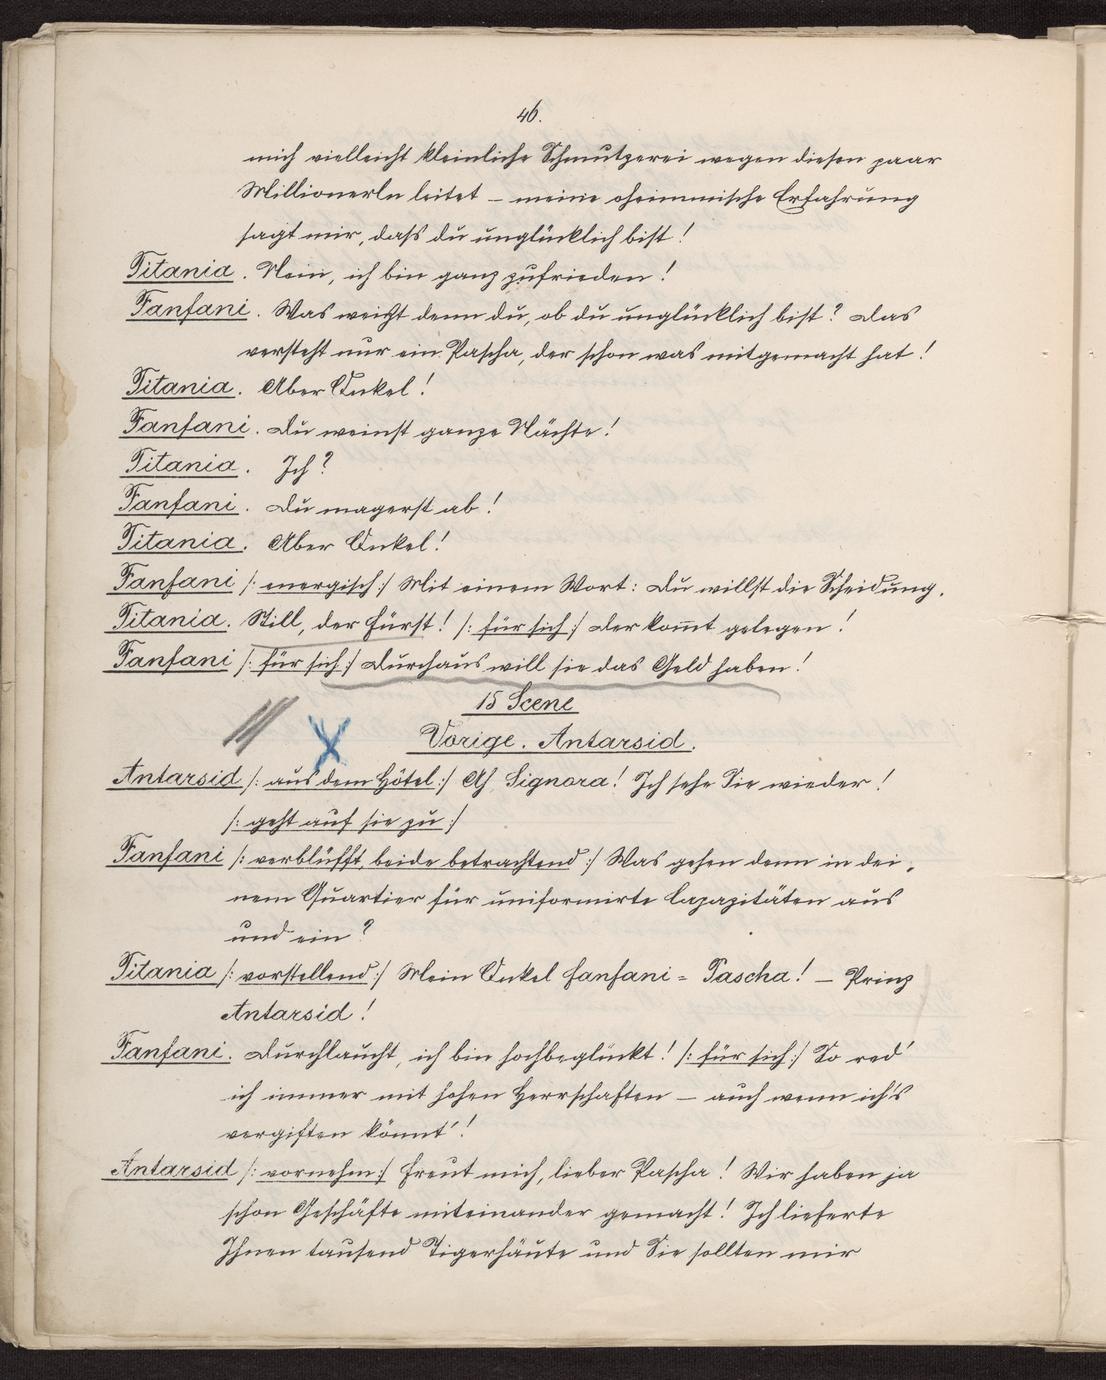 46.
mich vielleicht kleinliche Schmutzerei wegen diesen paar
Millionerln leitet – meine oheimmische Erfahrung
sagt mir, dass du unglücklich bist!
Titania. Nein, ich bin ganz zufrieden!
Fanfani. Was weißt denn du, ob du unglücklich bist? Das
versteht nur ein Pascha, der schon was mitgemacht hat!
Titania. Aber Onkel!
Fanfani. Du weinst ganze Nächte!
Titania. Ich?
Fanfani. Du magerst ab!
Titania. Aber Onkel!
Fanfani /: energisch :/ Mit einem Wort: Du willst die Scheidung.
Titania. Still, der Fürst! /: für sich :/ Der kom̄t gelegen!
Fanfani /: für sich :/ Durchaus will sie das Geld haben!
15 Scene
Vorige. Antarsid.
Antarsid /: aus dem Hôtel :/ Ah Signora! Ich sehe Sie wieder!
/: geht auf sie zu :/
Fanfani /: verblüfft, beide betrachtend :/ Was gehen denn in dei-
nem Quartier für uniformirte Capazitäten aus
und ein?
Titania /: vorstellend :/ Mein Onkel Fanfani = Pascha! – Prinz
Antarsid!
Fanfani. Durchlaucht, ich bin hochbeglückt! /: für sich :/ So red'
ich immer mit hohen Herrschaften – auch wenn ich's
vergiften könnt'!
Antarsid /: vornehm :/ Freut mich, lieber Pascha! Wir haben ja
schon Geschäfte miteinander gemacht! Ich lieferte
Ihnen tausend Tigerhäute und Sie sollten mir